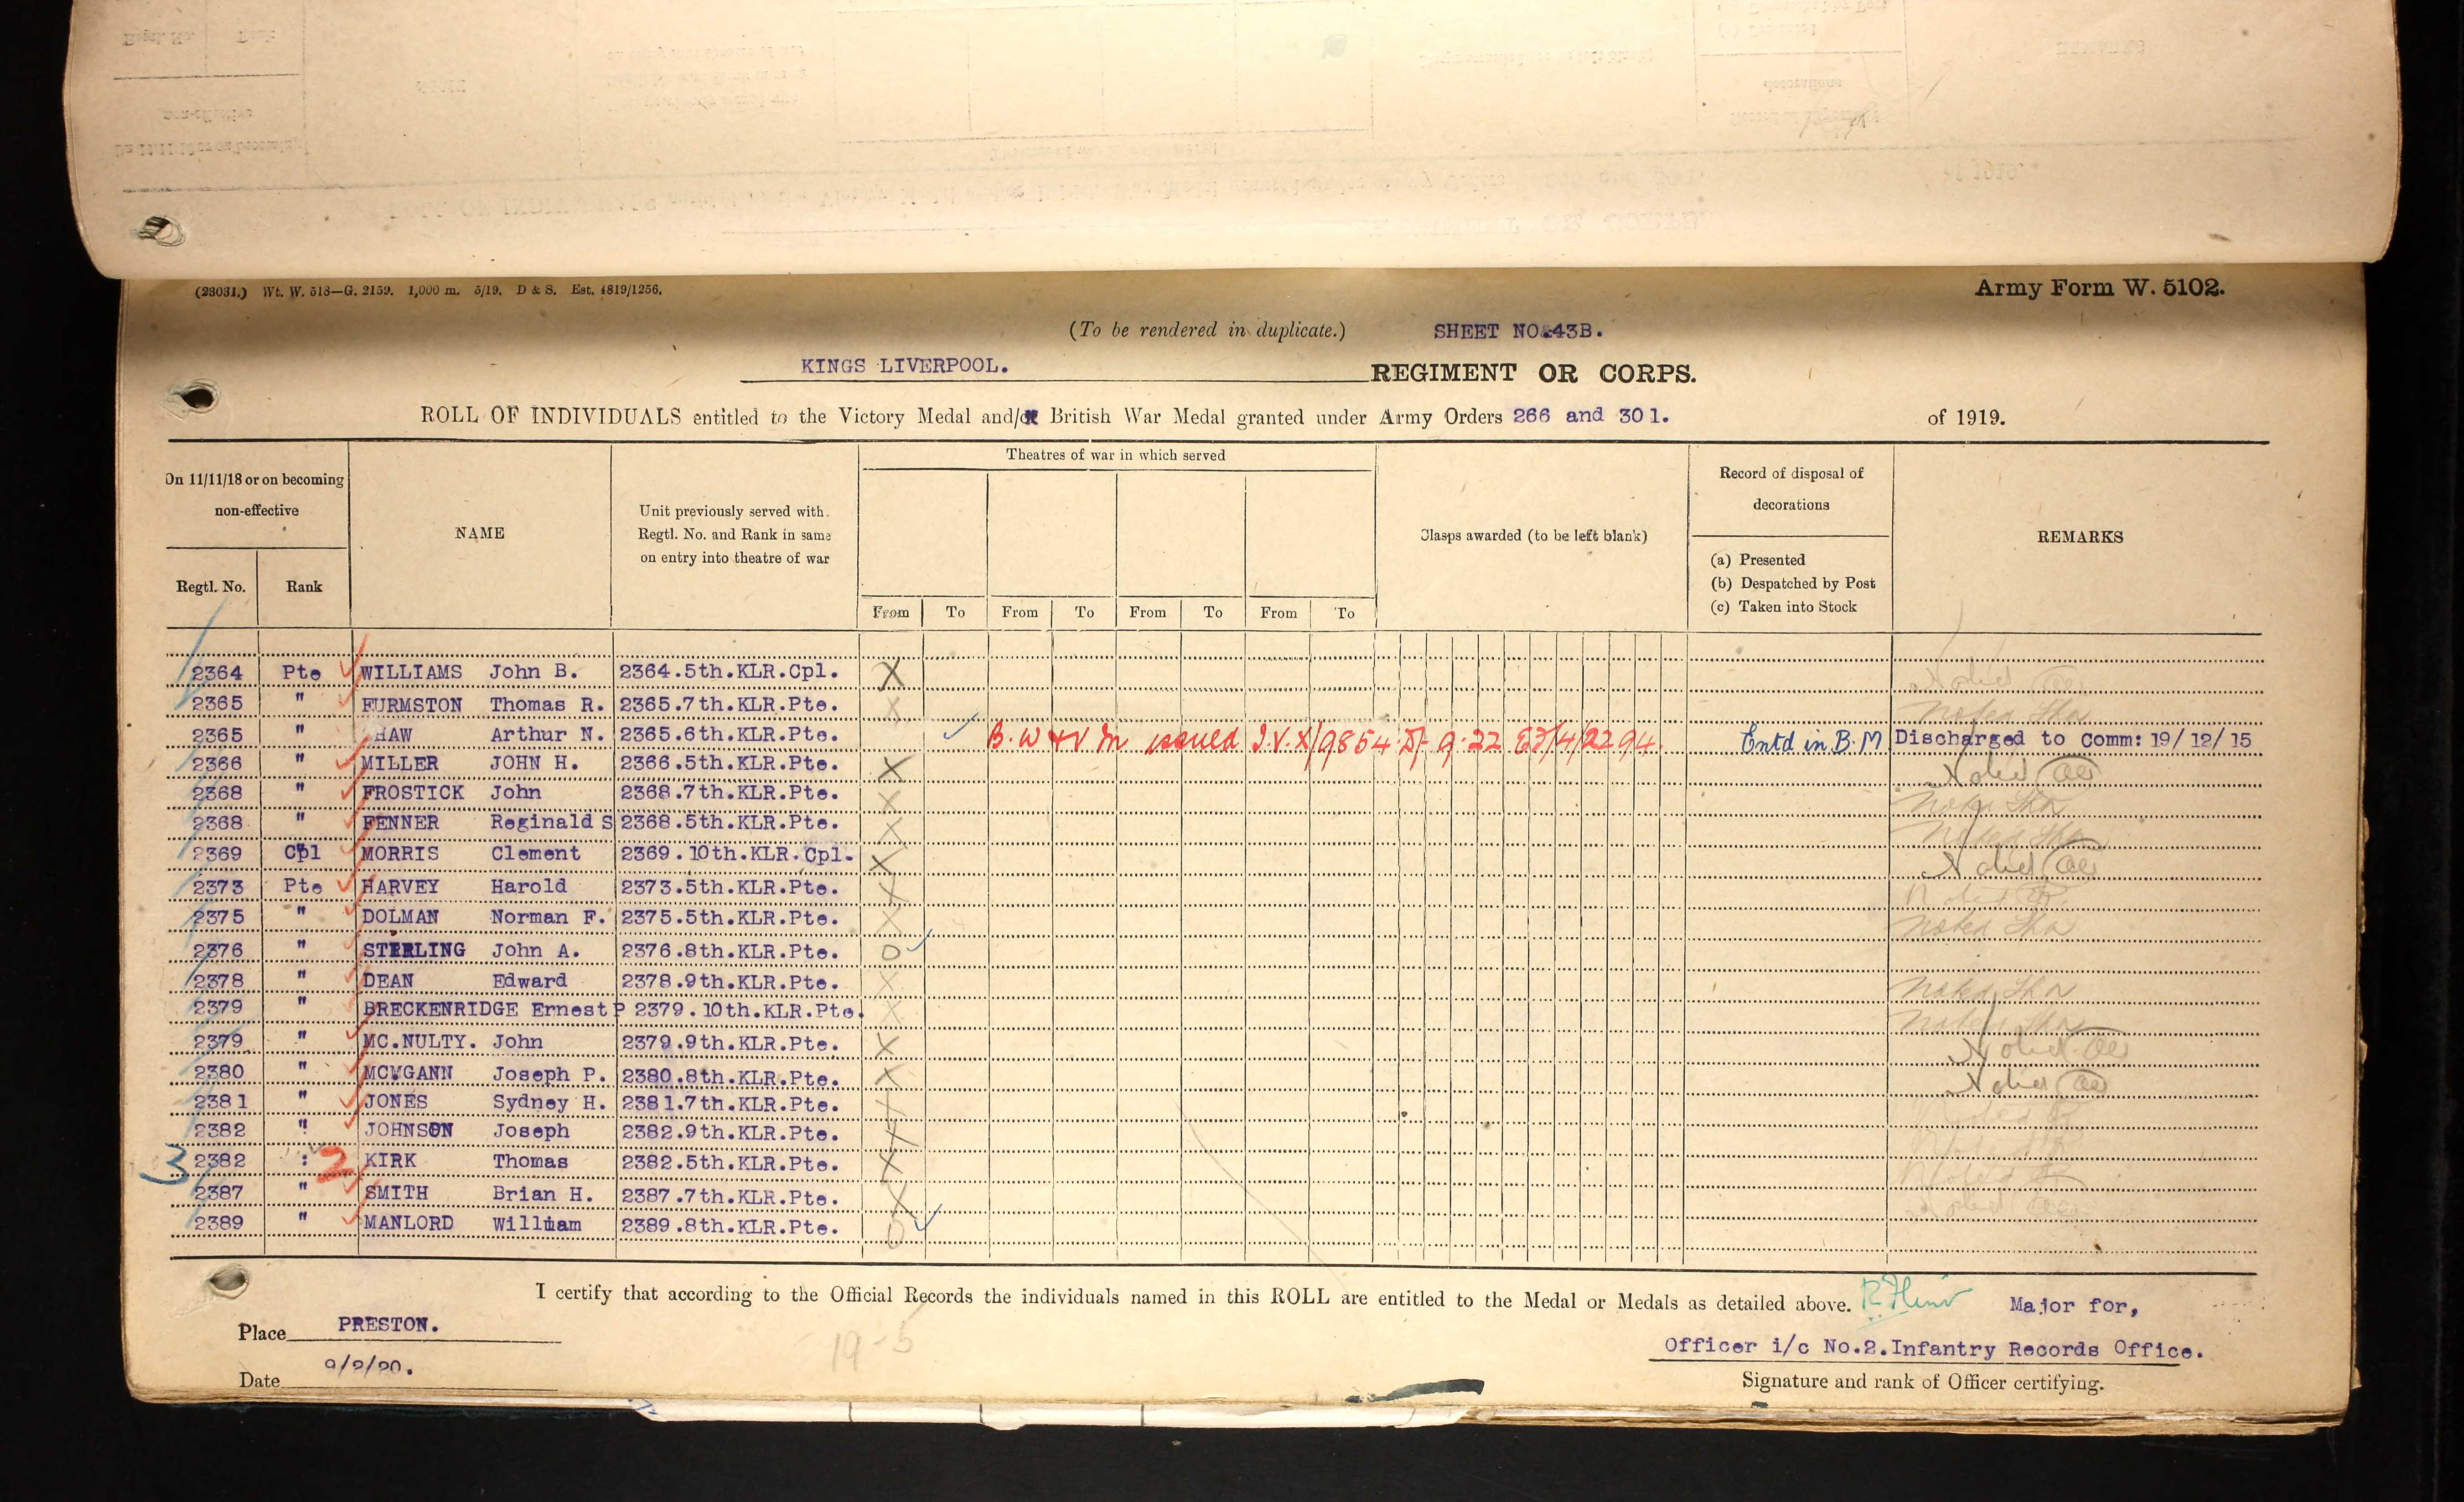 (23031.) Wt. W. 513—G. 2159. 1,000 m. 5/19. D & S. Est. 1819/1256.
Army Form W. 5102.
(To be rendered in duplicate.) SHEET NO.43B.
KINGS LIVERPOOL. REGIMENT OR CORPS.
ROLL OF INDIVIDUALS entitled to the Victory Medal and/or British War Medal granted under Army Orders 266 and 301. of 1919.
On 11/11/18 or on becoming non-effective
Regtl. No. Rank
NAME
Unit previously served with. Regtl. No. and Rank in same on entry into theatre of war
Theatres of war in which served
From To From To From To From To
Clasps awarded (to be left blank)
Record of disposal of decorations
(a) Presented
(b) Despatched by Post
(c) Taken into Stock
REMARKS
2364 Pte WILLIAMS John B. 2364.5th.KLR.Cpl. X Noted
2365 " FURMSTON Thomas R. 2365.7th.KLR.Pte. X Noted
2365 " HAW Arthur N. 2365.6th.KLR.Pte. B.W & V M issued I.V.X/9854 9.22 Entd in B.M Discharged to Comm: 19/12/15
2366 " MILLER JOHN H. 2366.5th.KLR.Pte. X Noted
2368 " FROSTICK John 2368.7th.KLR.Pte. X Noted
2368 " FENNER Reginald S 2368.5th.KLR.Pte. X Noted
2369 Cpl MORRIS Clement 2369.10th.KLR.Cpl. X Noted
2373 Pte HARVEY Harold 2373.5th.KLR.Pte. X Noted
2375 " DOLMAN Norman F. 2375.5th.KLR.Pte. X Noted
2376 " STIRLING John A. 2376.8th.KLR.Pte. O
2378 " DEAN Edward 2378.9th.KLR.Pte. X Noted
2379 " BRECKENRIDGE Ernest P 2379.10th.KLR.Pte. X Noted
2379 " MC.NULTY. John 2379.9th.KLR.Pte. X Noted
2380 " MCGANN Joseph P. 2380.8th.KLR.Pte. X Noted
2381 " JONES Sydney H. 2381.7th.KLR.Pte. X Noted
2382 " JOHNSON Joseph 2382.9th.KLR.Pte. X Noted
3 2382 : 2 KIRK Thomas 2382.5th.KLR.Pte. X Noted
2387 " SMITH Brian H. 2387.7th.KLR.Pte. X Noted
2389 " MANLORD William 2389.8th.KLR.Pte. O
I certify that according to the Official Records the individuals named in this ROLL are entitled to the Medal or Medals as detailed above. Major for,
Place PRESTON. 19-5 Officer i/c No.2.Infantry Records Office.
Date 9/2/20. Signature and rank of Officer certifying.